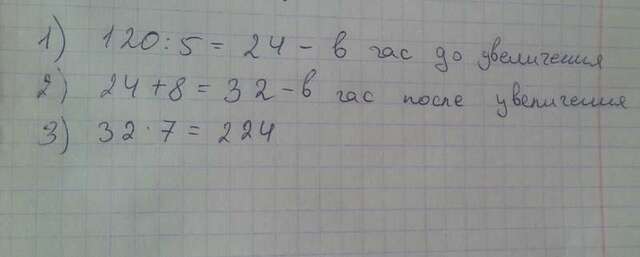 1) 120:5 = 24 - в час до увеличения
2) 24+8 = 32 - в час после увеличения
3) 32·7 = 224